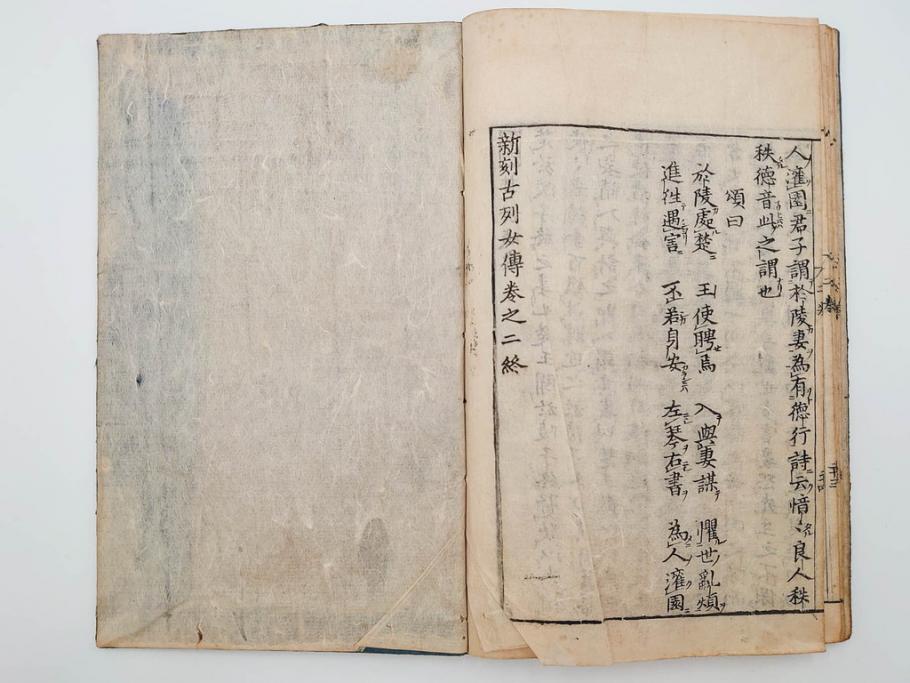 人灌園君子謂於陵妻為有德行詩云愔〻良人秩
秩德音此之謂也
頌曰
於陵處楚 王使聘焉 入與妻謀 懼世亂煩
進徃遇害 不若身安 左琴右書 為人灌園
新刻古列女傳卷之二終